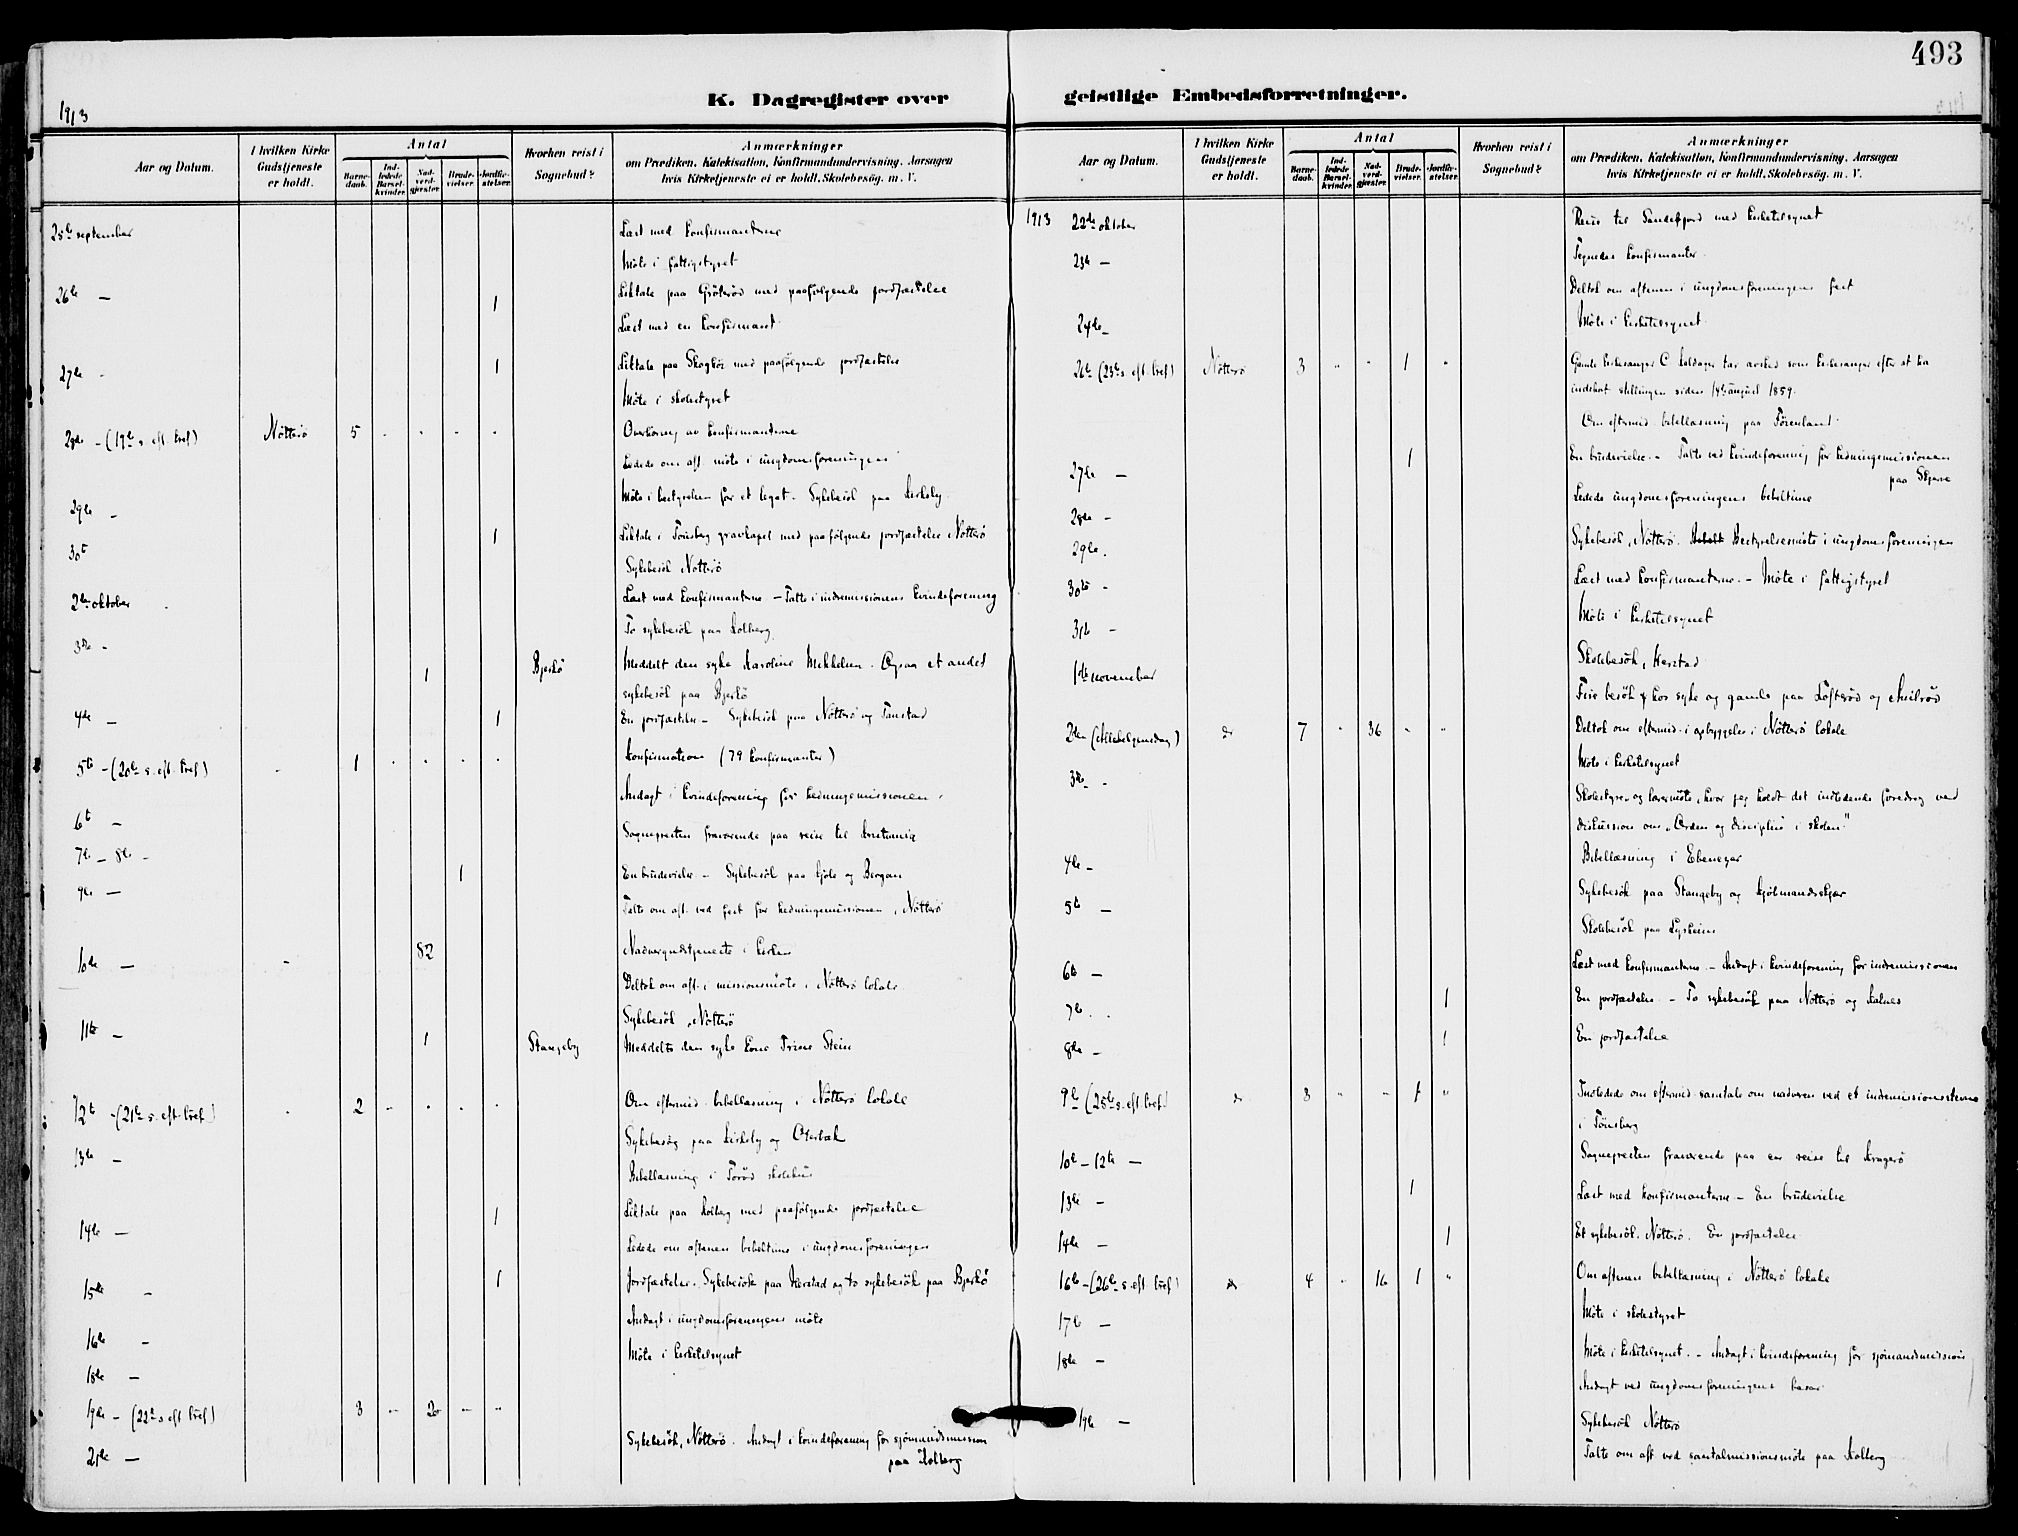 493
K. Dagregister over geistlige Embedsforretninger.
1913
Aar og Datum.
I hvilken Kirke Gudstjeneste er holdt.
Antal
Barne-daab.
Ind-ledede Barsel-kvinder.
Nad-verd-gjester.
Brude-vielser.
Jordfæ-stelser.
Hvorhen reist i Sognebud?
Anmærkninger
om Prædiken, Katekisation, Konfirmandundervisning, Aarsagen
hvis Kirketjeneste ei er holdt, Skolebesøg. m. V.
25de september Læst med konfirmanterne
Møte i fattigstyret
26de — 1 Liktale paa Grøterød med paafølgende jordfæstelse
Læst med en konfirmant
27de - 1 Liktale paa Skogkør med paafølgende jordfæstelse
Møte i skolestyret
28de - (19de s. eft. tref.) Nøtterø 5 - - - - Overhøring av konfirmanterne
Ledede om aft. møte i ungdomsforeningen
29de - Møte i bestyrelsen for et legat. Sykebesøk paa Kirkeby
30te 1 Liktale i Tønsberg gravkapel med paafølgende jordfæstelse Nøtterø
Sykebesøk Nøtterø
2den oktober Læst med konfirmanterne - Talte i indremissionens kvindeforening
3die - To sykebesøk paa Kolberg
1 Bjerkø Meddelt den syke Karoline Mikkelsen. Ogsaa et andet
sykebesøk paa Bjerkø
4de — 1 En jordfæstelse - Sykebesøk paa Nøtterø og Tanstad
5te - (20de s. eft. tref.) - 1 - - - - Konfirmation (79 konfirmanter)
Andagt i kvindeforening for hedningemissionen
6te — Sognepresten fraværende paa reise til Kristiania
7de - 8de -
9de — 1 En brudevielse - Sykebesøk paa Hjole og Bergan
Talte om aft. ved fest for hedningemissionen, Nøtterø
10de — - 82 Nadvergudstjeneste i kirken
Deltok om aft. i missionsmøte i Nøtterø lokale
11te — Sykebesøk, Nøtterø
1 Stangeby Meddelt den syke kone Trine Stein
12te - (21de s. eft. tref.) - 2 - - - - Om eftermid. bibellæsning i Nøtterø lokale
13de — Sykebesøg paa Kirkeby og Oterbæk
Bibellæsning i Torød skolehus
14de — 1 Liktale paa Kolberg med paafølgende jordfæstelse
Ledede om aftenen bibeltime i ungdomsforeningen
15de - 1 Jordfæstelse. Sykebesøk paa Herstad og to sykebesøk paa Bjerkø
16de - Andagt i ungdomsforeningens møte
18de - Møte i kirketilsynet
19de - (22de s. eft. tref.) 3 - 20 - -
21de — Sykebesøk, Nøtterø. Andagt i kvindeforening for sjømandsmission
paa Kolberg
Aar og Datum.
I hvilken Kirke Gudstjeneste er holdt.
Antal
Barne-daab.
Ind-ledede Barsel-kvinder.
Nad-verd-gjester.
Brude-vielser.
Jordfæ-stelser.
Hvorhen reist i Sognebud?
Anmærkninger
om Prædiken, Katekisation, Konfirmandundervisning, Aarsagen
hvis Kirketjeneste ei er holdt, Skolebesøg. m. V.
1913 22de oktober Reise til Sandefjord med kirketilsynet
23de — Tegnedes konfirmanter
Deltok om aftenen i ungdomsforeningens fest
24de - Møte i kirketilsynet
26de (23de s. eft. tref.) Nøtterø 3 " " 1 " Gamle kirkesanger C. Holdager tar avsked som kirkesanger efter at ha
indehat stillingen siden 14de august 1859.
Om eftermid. bibellæsning paa Førenland
27de — 1 En brudevielse - Talte ved kvindeforening for hedningemissionen
paa Skjerve
28de - Ledede ungdomsforeningens bibeltime
29de. Sykebesøk, Nøtterø. Bestyrelsesmøte i ungdomsforeningen
30te - Læst med konfirmanterne. - Møte i fattigstyret
31te - Møte i kirketilsynet
1ste november Skolebesøk, Herstad
Fire besøk hos syke og gamle paa Tofterød og
2den (Allehelgensdag) do 7 " 36 " " Deltok om eftermid. i opbyggelse i Nøtterø lokale
3die - Møte i kirketilsynet
Skolestyre- og lærermøte, hvor jeg holdt det indledende foredrag ved
diskussion om „Orden og disciplin i skolen"
4de - Bibellæsning i Ebeneser
5te — Sykebesøk paa Stangeby og Kjølmandskjær
Skolebesøk paa Lysheim
6te — Læst med konfirmanterne - Andagt i kvindeforening for indremissionen
7de - 1 En jordfæstelse - To sykebesøk paa Nøtterø og Kalnes
8de - 1 En jordfæstelse
9de (25de s. eft. tref.) do 8 " " 1 " Indledede om eftermid. samtale om nadveren ved et indremissionsstevne
i Tønsberg
10de - 12te — Sognepresten fraværende paa en reise til Kragerø
13de - 1 Læst med konfirmanterne - En brudevielse
14de - 1 Et sykebesøk, Nøtterø. En jordfæstelse
16de - (26de s. eft. tref.) do 4 " 16 1 " Om aftenen bibellæsning i Nøtterø lokale
17de — Møte i skolestyret
18de - Møte i kirketilsynet. - Andagt i kvindeforening for sjømandsmission
Andagt ved ungdomsforeningens basar
19de — Sykebesøk Nøtterø
Talte om aft ved santalmissionsmøte paa Kolberg